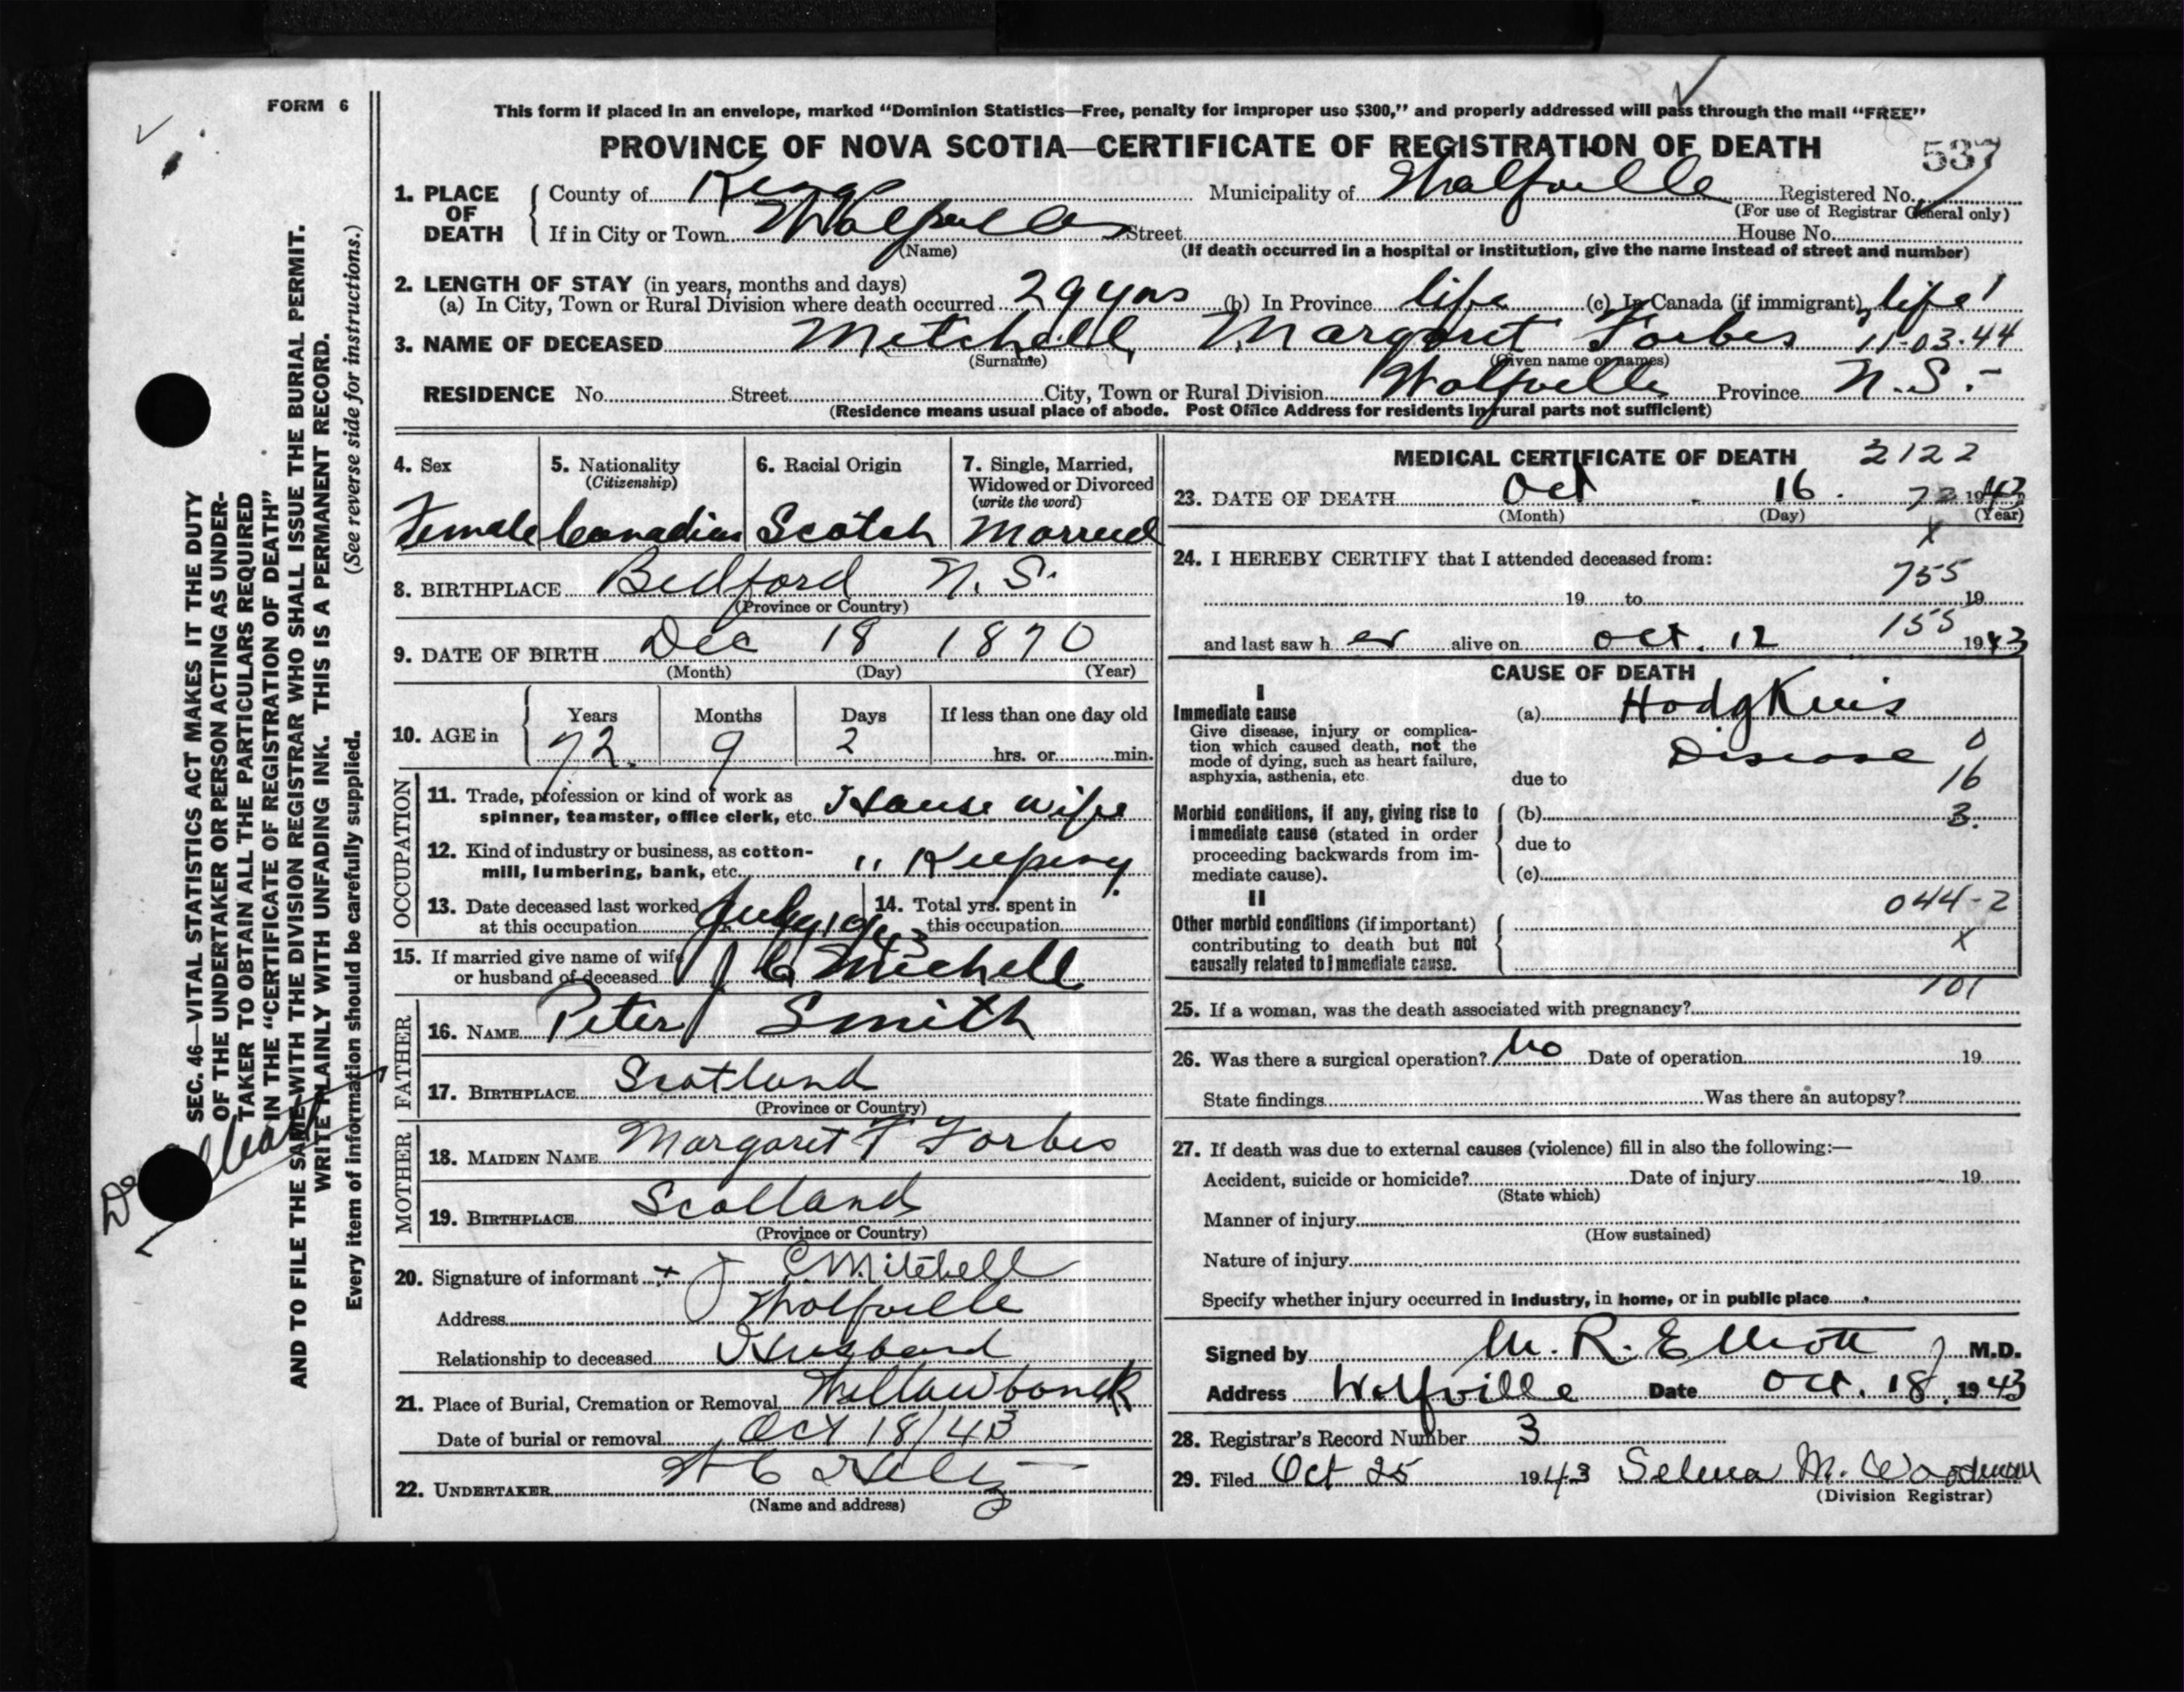 FORM 6
This form if placed in an envelope, marked “Dominion Statistics—Free, penalty for improper use $300,” and properly addressed will pass through the mail “FREE”
PROVINCE OF NOVA SCOTIA—CERTIFICATE OF REGISTRATION OF DEATH
537
1. PLACE OF DEATH
County of Kings Municipality of Wolfville Registered No.
(For use of Registrar General only)
If in City or Town Wolfville Street House No.
(Name) (If death occurred in a hospital or institution, give the name instead of street and number)
2. LENGTH OF STAY (in years, months and days)
(a) In City, Town or Rural Division where death occurred 29 yrs (b) In Province life (c) In Canada (if immigrant) life
3. NAME OF DECEASED Mitchell, Margaret Forbes 11-03-44
(Surname) (Given name or names)
RESIDENCE No. Street City, Town or Rural Division Wolfville Province N.S.-
(Residence means usual place of abode. Post Office Address for residents in rural parts not sufficient)
4. Sex
Female
5. Nationality
(Citizenship)
Canadian
6. Racial Origin
Scotch
7. Single, Married,
Widowed or Divorced
(write the word)
Married
8. BIRTHPLACE Bedford N.S.
(Province or Country)
9. DATE OF BIRTH Dec 18 1870
(Month) (Day) (Year)
10. AGE in
Years Months Days If less than one day old
72. 9 2 hrs. or min.
OCCUPATION
11. Trade, profession or kind of work as
spinner, teamster, office clerk, etc. House wife
12. Kind of industry or business, as cotton-
mill, lumbering, bank, etc. " Keeping
13. Date deceased last worked
at this occupation July 1943
14. Total yrs. spent in
this occupation
15. If married give name of wife
or husband of deceased J C Michell
FATHER
16. NAME Peter Smith
17. BIRTHPLACE Scotland
(Province or Country)
MOTHER
18. MAIDEN NAME Margaret F Forbes
19. BIRTHPLACE Scotland
(Province or Country)
20. Signature of informant x J C Mitchell
Address Wolfville
Relationship to deceased Husband
21. Place of Burial, Cremation or Removal Willowbank
Date of burial or removal Oct 18/43
22. UNDERTAKER
(Name and address)
MEDICAL CERTIFICATE OF DEATH 2122
23. DATE OF DEATH Oct. 16. 72 1943
(Month) (Day) (Year)
x
24. I HEREBY CERTIFY that I attended deceased from:
755
19 to 19
155
and last saw h er alive on Oct. 12 1943
CAUSE OF DEATH
I
Immediate cause
Give disease, injury or complica-
tion which caused death, not the
mode of dying, such as heart failure,
asphyxia, asthenia, etc.
(a) Hodgkin's
Disease 0
due to 16
Morbid conditions, if any, giving rise to
immediate cause (stated in order
proceeding backwards from im-
mediate cause).
(b) 3.
due to
(c)
II
Other morbid conditions (if important)
contributing to death but not
causally related to immediate cause.
044-2
x
101
25. If a woman, was the death associated with pregnancy?
26. Was there a surgical operation? No Date of operation 19
State findings Was there an autopsy?
27. If death was due to external causes (violence) fill in also the following:—
Accident, suicide or homicide? Date of injury 19
(State which)
Manner of injury
(How sustained)
Nature of injury
Specify whether injury occurred in industry, in home, or in public place
Signed by M. R. Elliott M.D.
Address Wolfville Date Oct. 18, 1943
28. Registrar's Record Number 3
29. Filed Oct 25 1943 Selena M. Woodman
(Division Registrar)
SEC. 46—VITAL STATISTICS ACT MAKES IT THE DUTY
OF THE UNDERTAKER OR PERSON ACTING AS UNDER-
TAKER TO OBTAIN ALL THE PARTICULARS REQUIRED
IN THE “CERTIFICATE OF REGISTRATION OF DEATH”
AND TO FILE THE SAME WITH THE DIVISION REGISTRAR WHO SHALL ISSUE THE BURIAL PERMIT.
WRITE PLAINLY WITH UNFADING INK. THIS IS A PERMANENT RECORD.
Every item of information should be carefully supplied. (See reverse side for instructions.)